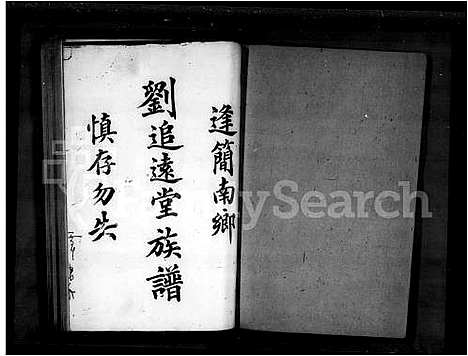 逢簡南鄉
劉追遠堂族譜
慎存勿失